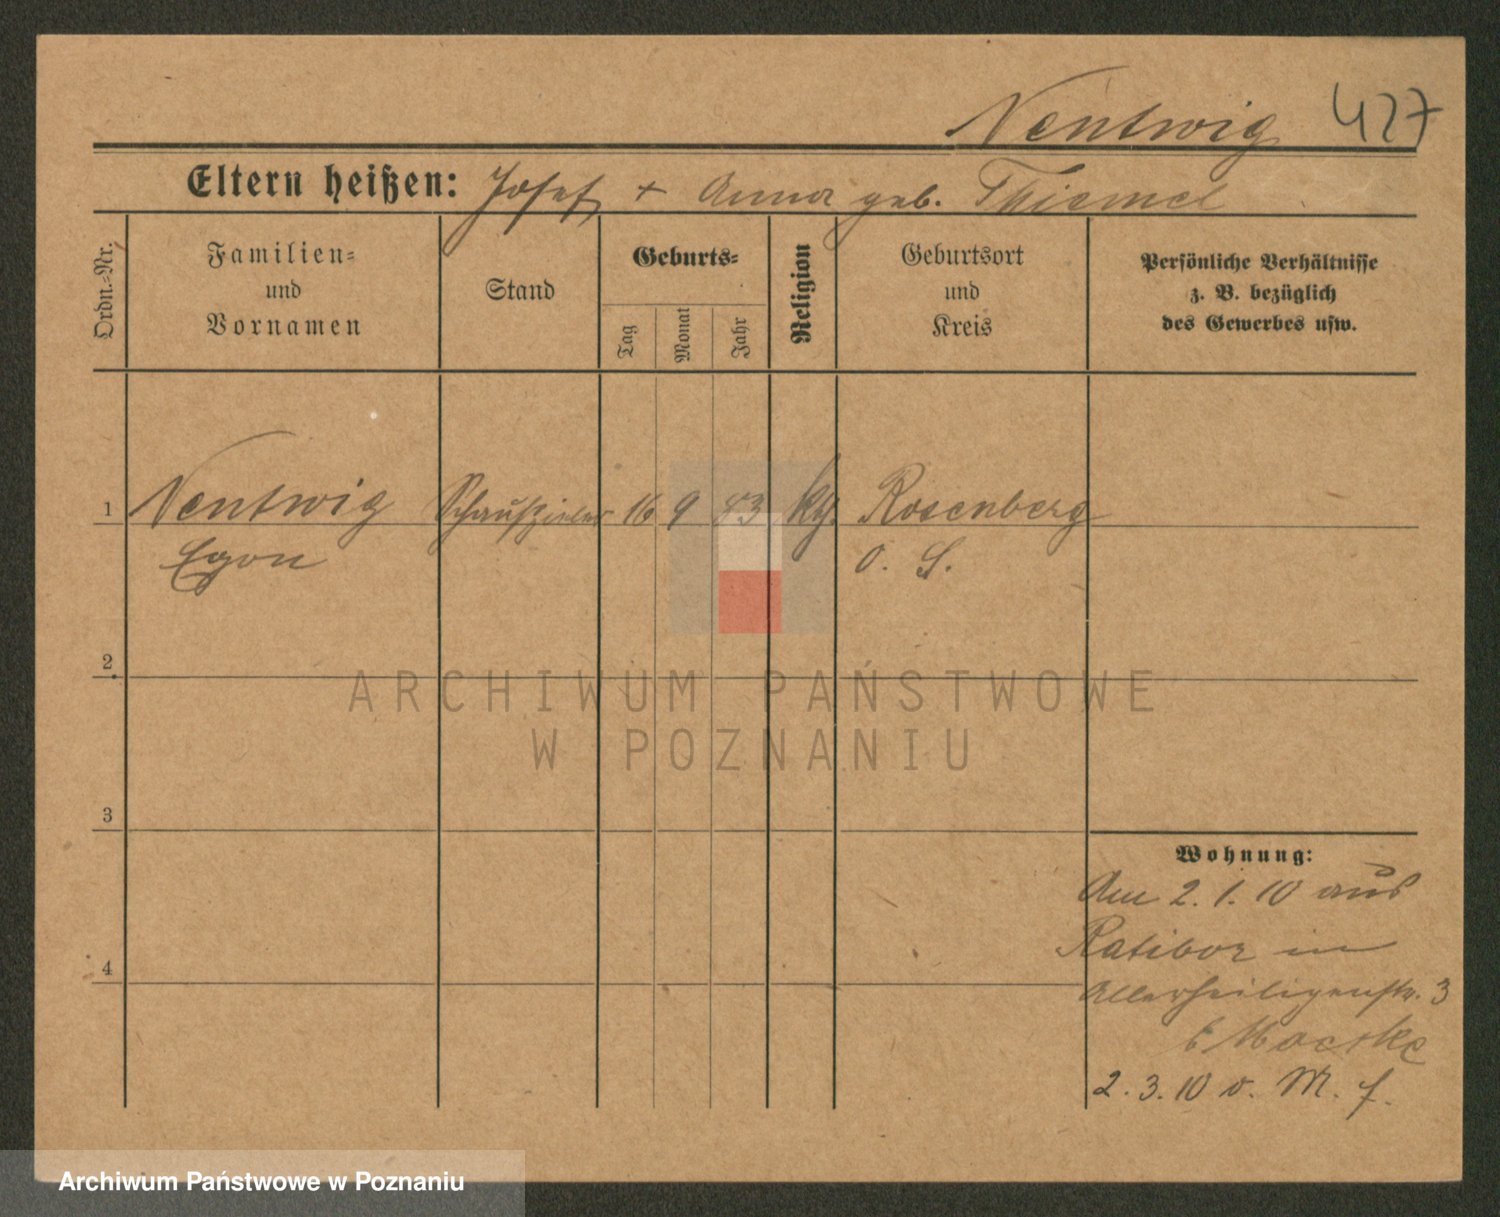 Nentwig 427
Eltern heißen: Josef + Anna geb. Thiemel
Ordn.-Nr.
Familien-
und
Vornamen
Stand
Geburts-
Tag
Monat
Jahr
Religion
Geburtsort
und
Kreis
Persönliche Verhältnisse
z. B. bezüglich
des Gewerbes usw.
1 Nentwig Schauspieler 16 9 83 kth. Rosenberg
Egon O. S.
2
3
4
Wohnung:
Am 2. 1. 10 aus
Ratibor in
Allerheiligenstr. 3
b
2. 3. 10 v. M. f.
ARCHIWUM PAŃSTWOWE
W POZNANIU
Archiwum Państwowe w Poznaniu